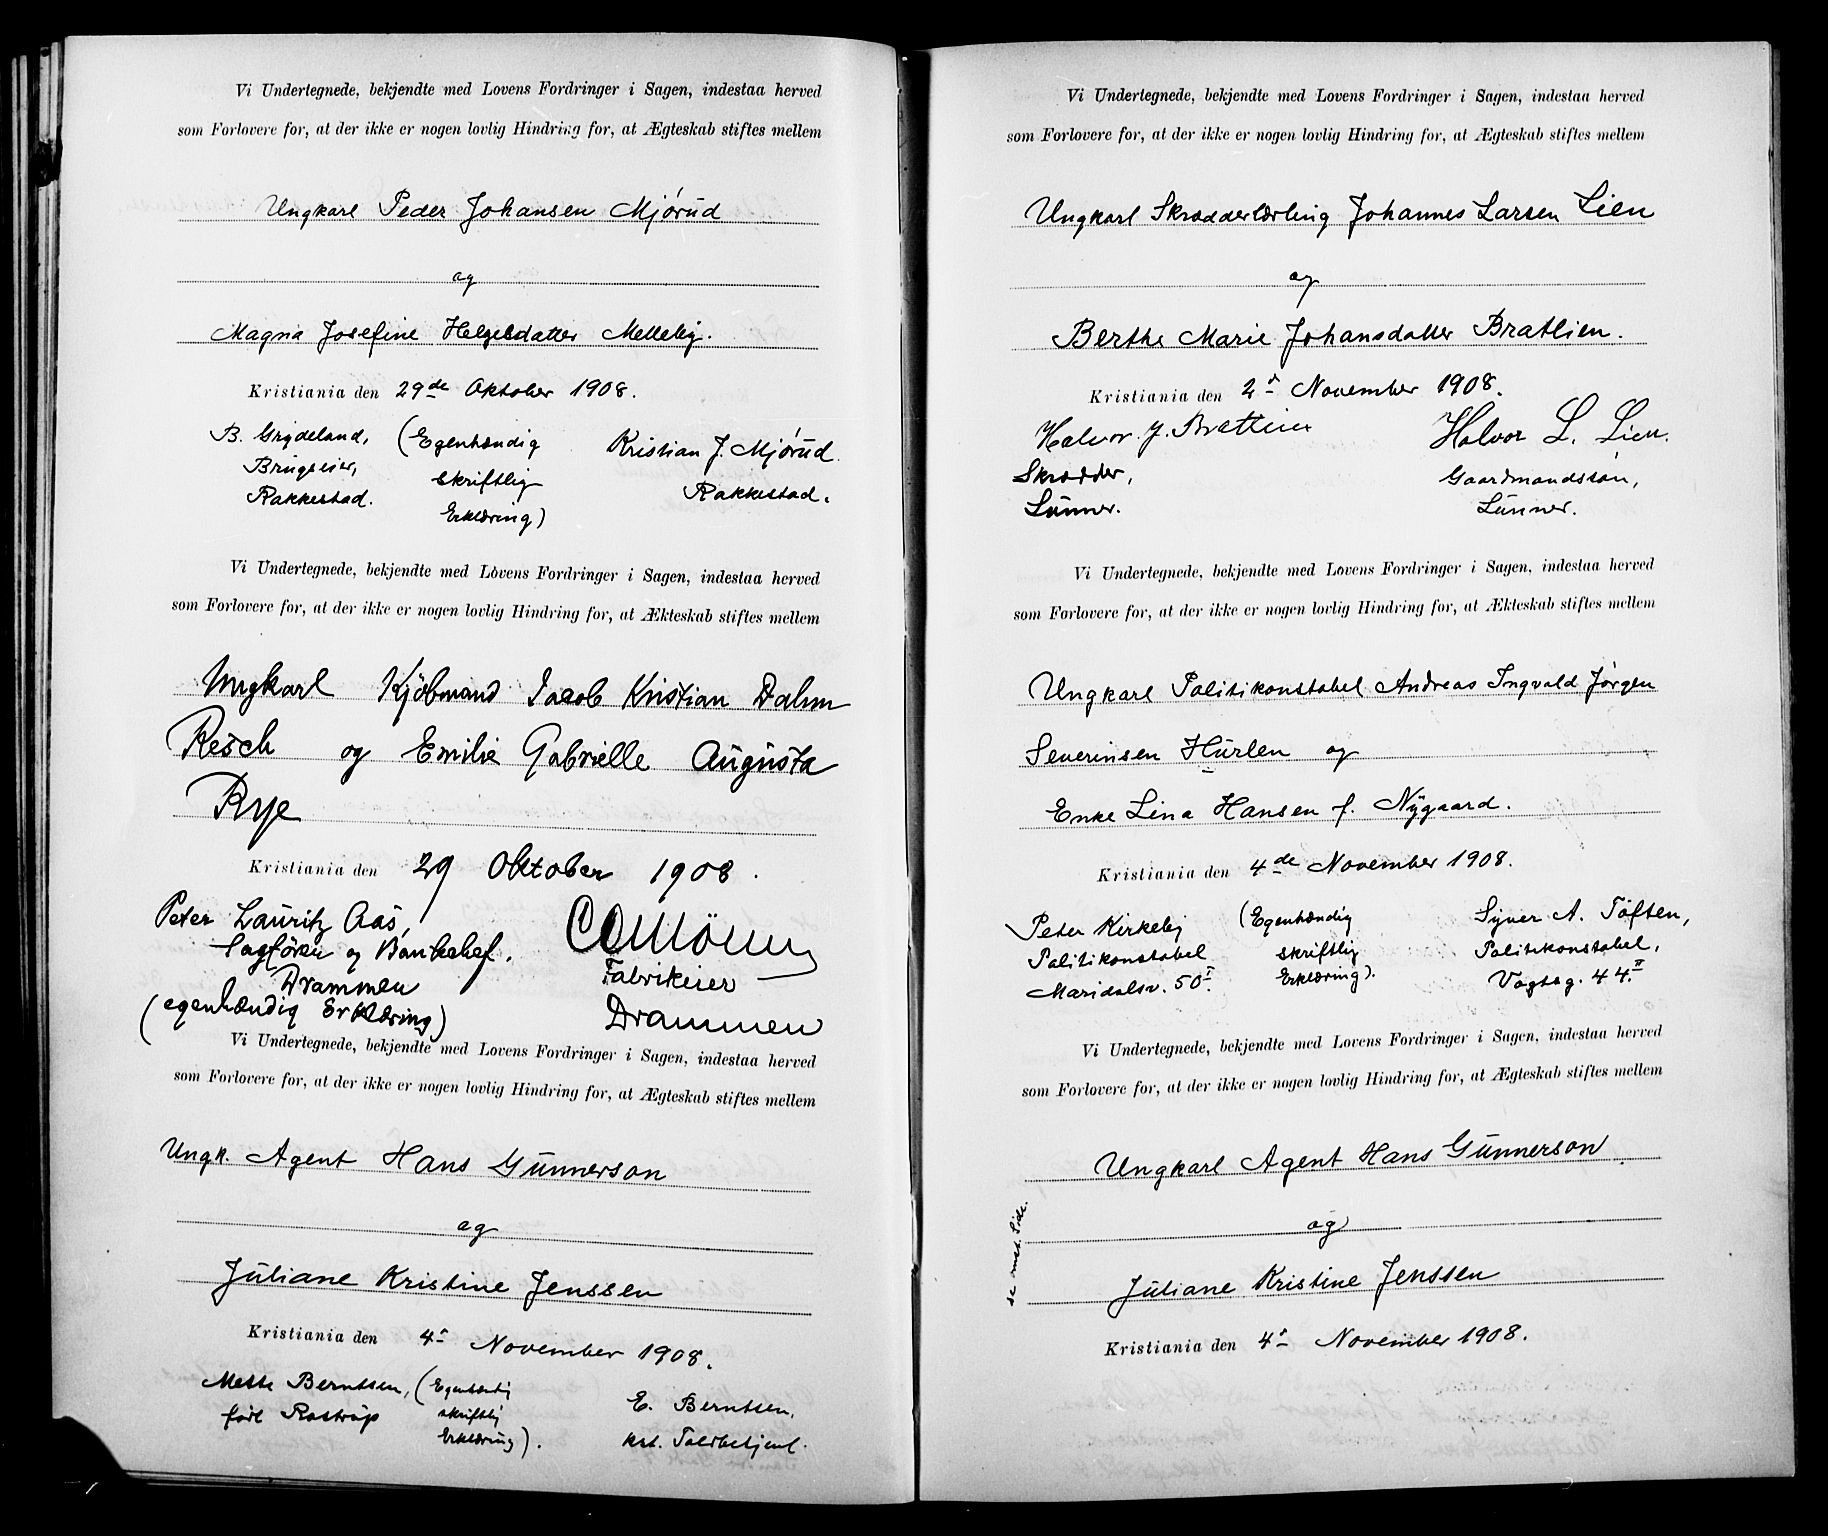 Vi Undertegnede, bekjendte med Lovens Fordringer i Sagen, indestaa herved
som Forlovere for, at der ikke er nogen lovlig Hindring for, at Ægteskab stiftes mellem
Ungkarl Peder Johansen Mjørud
og
Magna Josefine Helgesdatter Melleby.
Kristiania den 29de Oktober 1908.
B. Grydeland, (Egenhændig Kristian J. Mjørud
Brugseier, skriftlig Rakkestad.
Rakkestad. Erklæring)
Vi Undertegnede, bekjendte med Lovens Fordringer i Sagen, indestaa herved
som Forlovere for, at der ikke er nogen lovlig Hindring for, at Ækteskab stiftes mellem
Ungkarl Kjöbmand Jacob Kristian Dahm
Resch og Emilie Gabrielle Augusta
Rye
Kristiania den 29 Oktober 1908.
Peter Lauritz Aas,
Sagförer og Bankchef. Fabrikeier
Drammen Drammen
(egenhændig Erklæring)
Vi Undertegnede, bekjendte med Lovens Fordringer i Sagen, indestaa herved
som Forlovere for, at der ikke er nogen lovlig Hindring for, at Ægteskab stiftes mellem
Ungk. Agent Hans Gunnerson
og
Juliane Kristine Jenssen
Kristiania den 4d November 1908.
Mette Berntsen, (Egenhændig E. Berntsen,
født Rostrup skriftlig kst. Toldbetjent.
Erklæring).
Vi Undertegnede, bekjendte med Lovens Fordringer i Sagen, indestaa herved
som Forlovere for, at der ikke er nogen lovlig Hindring for, at Ægteskab stiftes mellem
Ungkarl Skrædderlærling Johannes Larsen Lien
og
Berthe Marie Johansdatter Bratlien.
Kristiania den 2d November 1908.
Halvor J. Bratlien Halvor L. Lien.
Skrædder, Gaardmandssøn,
Lunner. Lunner.
Vi Undertegnede, bekjendte med Lovens Fordringer i Sagen, indestaa herved
som Forlovere for, at der ikke er nogen lovlig Hindring for, at Ækteskab stiftes mellem
Ungkarl Politikonstabel Andreas Ingvald Jørgen
Severinsen Hurlen og
Enke Lina Hansen f. Nygaard.
Kristiania den 4de November 1908.
Peter Kirkeby (Egenhændig Syver A. Toften,
Politikonstabel skriftlig Politikonstabel,
Maridalsv. 50 I. Erklæring). Vogtsg. 44 II.
Vi Undertegnede, bekjendte med Lovens Fordringer i Sagen, indestaa herved
som Forlovere for, at der ikke er nogen lovlig Hindring for, at Ægteskab stiftes mellem
Ungkarl Agent Hans Gunnerson.
og
Juliane Kristine Jenssen
se mst. Side.
Kristiania den 4d November 1908.